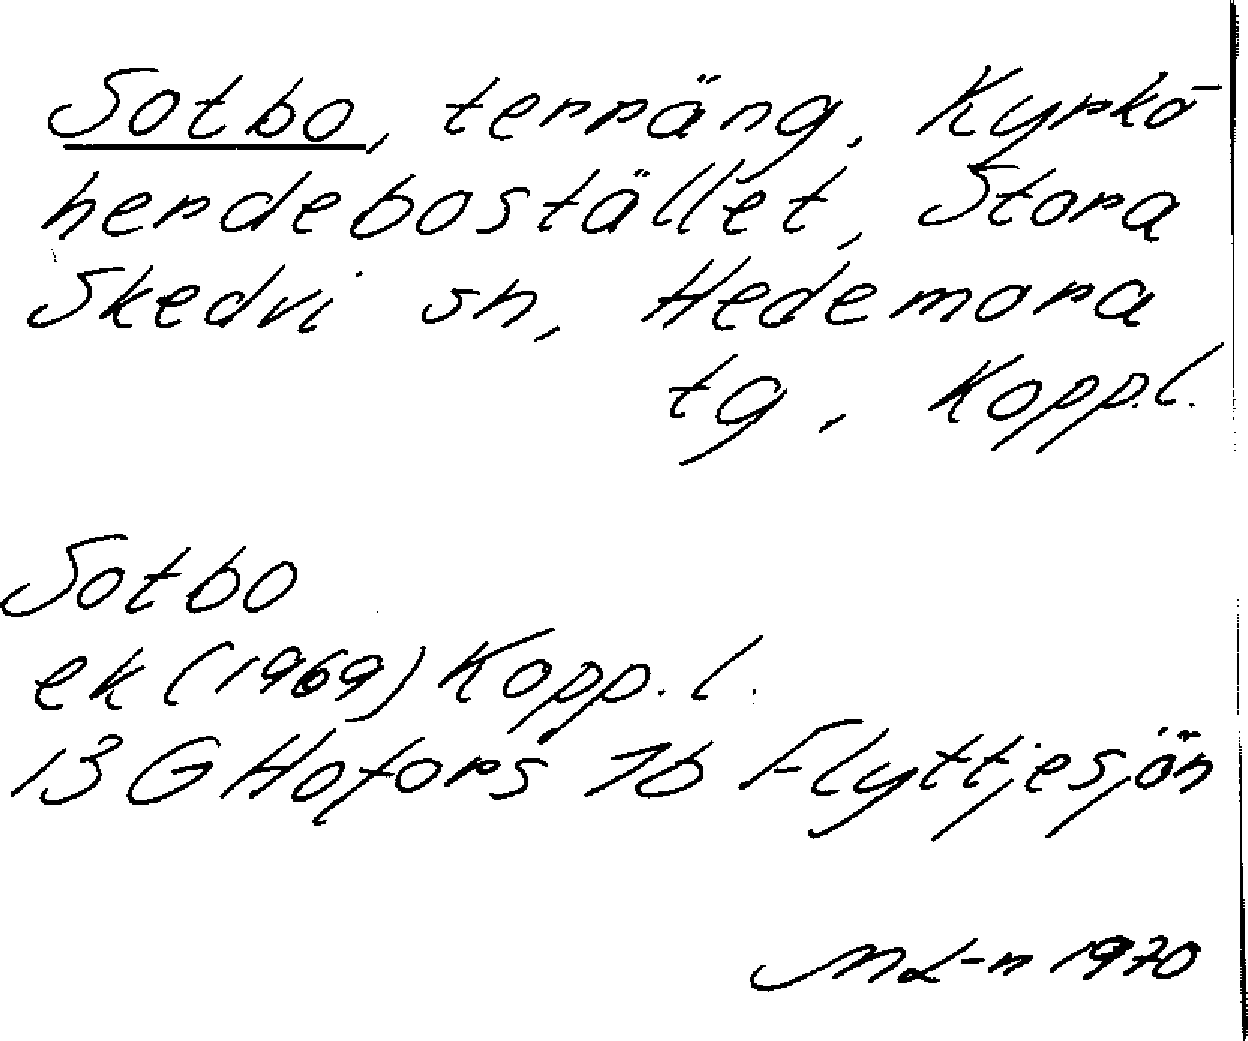 Sotbo, terräng, Kyrko-
herdebostället, Stora
Skedvi sn, Hedemora
tg, Kopp.l.
Sotbo
ek (1969) Kopp.l.
13 G Hofors 1b Flyttjesjön
ML-n 1970